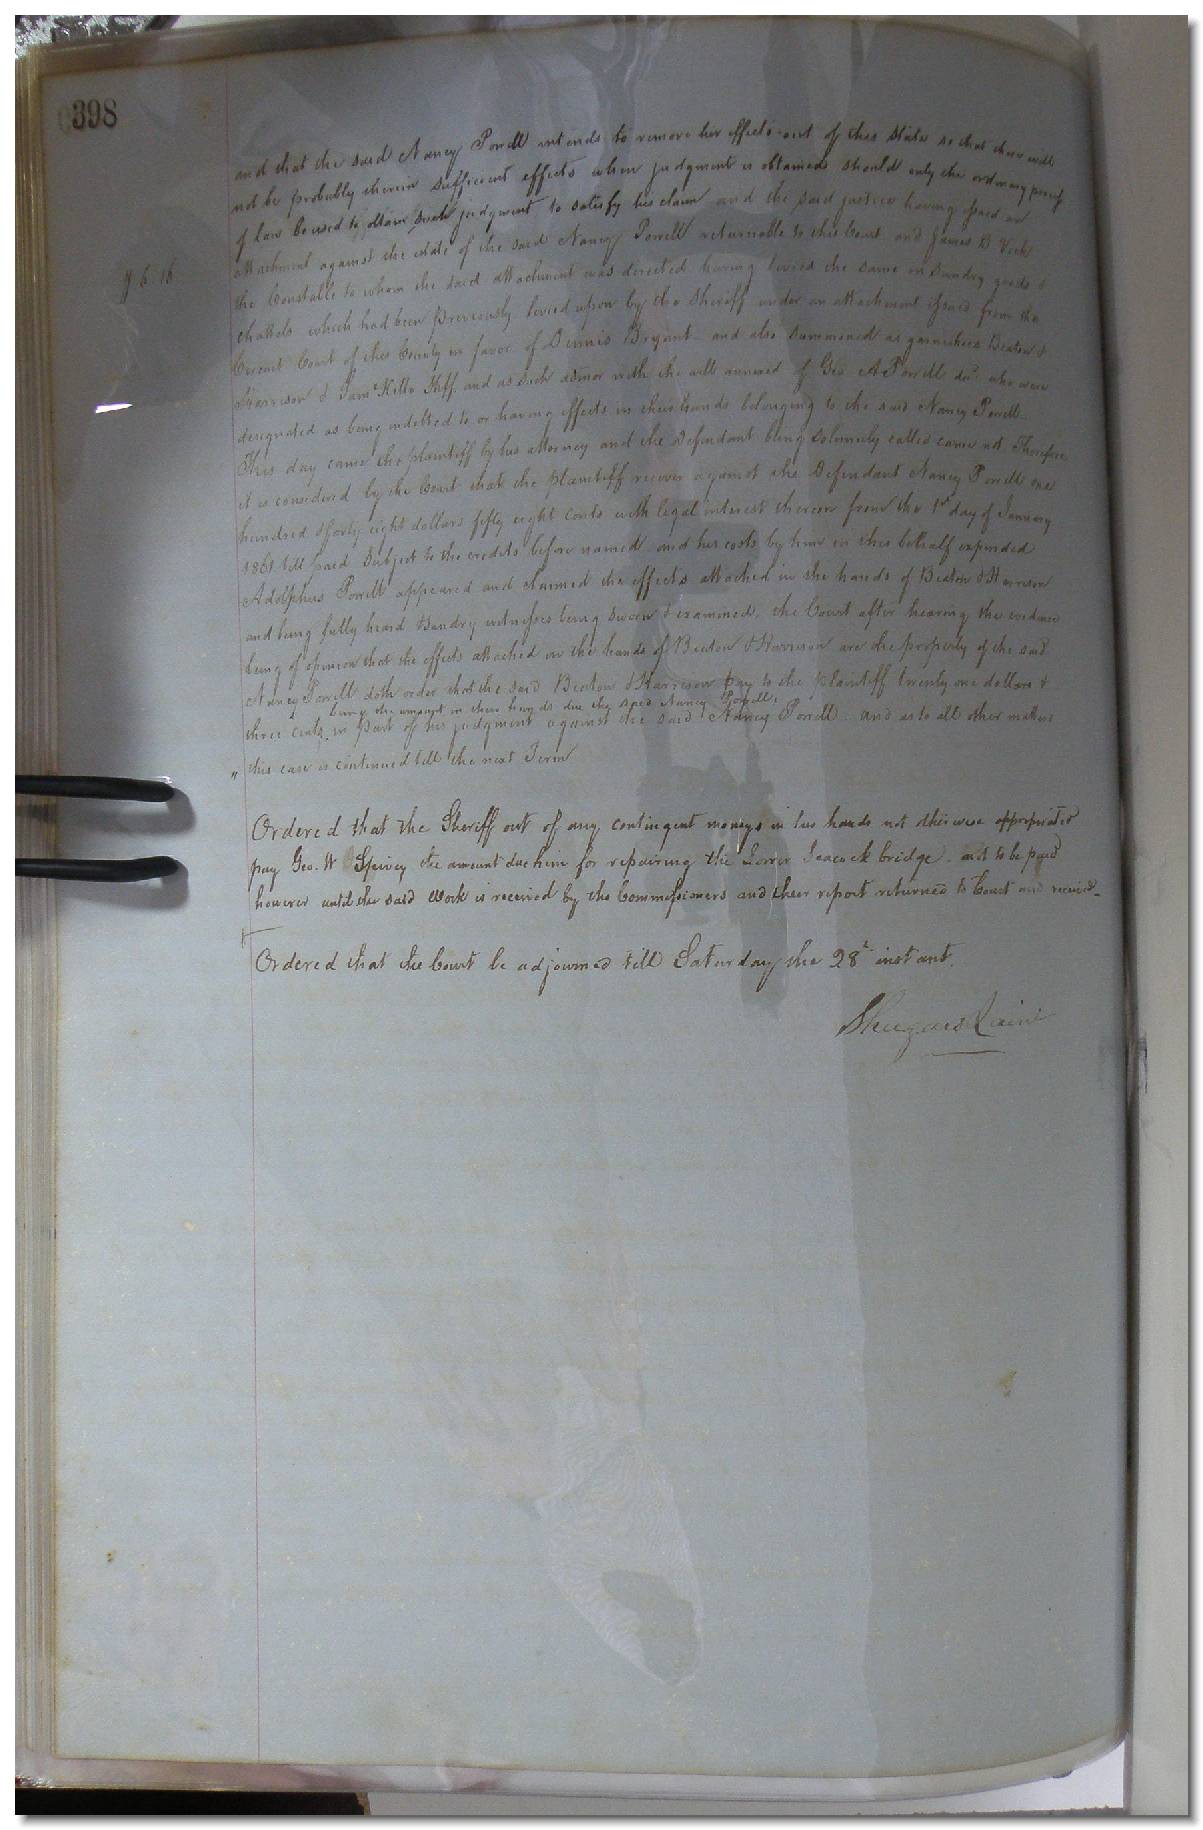 398
and that the said Nancy Powell intends to remove her effects out of this State so that there will
not be probably therein sufficient effects when judgment is obtained should only the ordinary process
of law be used to obtain such judgment to satisfy his claim and the said justice having issued an
attachment against the estate of the said Nancy Powell returnable to this Court and James B Vick
the Constable to whom the said attachment was directed having levied the same on sundry goods &
chattels which had been previously levied upon by the Sheriff under an attachment issued from the
Circuit Court of this County in favor of Dennis Bryant and also summoned as garnishees Beaton &
Harrison & Saml Kello Shff. and as such admor with the will annexed of Geo A Powell decd. who were
designated as being indebted to or having effects in their hands belonging to the said Nancy Powell.
This day came the plaintiff by his attorney and the Defendant being solemnly called came not Therefore
it is considered by the Court that the plaintiff recover against the Defendant Nancy Powell one
hundred & forty eight dollars fifty eight cents with legal interest thereon from the 1st day of January
1861 till paid Subject to the credits before named and his costs by him in this behalf expended
Adolphus Powell appeared and claimed the effects attached in the hands of Beaton & Harrison
and being fully heard & sundry witnesses being sworn & examined, the Court after hearing the evidence
being of opinion that the effects attached in the hands of Beaton & Harrison are the property of the said
Nancy Powell doth order that the said Beaton & Harrison pay to the plaintiff twenty one dollars &
being the amount in their hands due the said Nancy Powell,
three cents, in part of his judgment against the said Nancy Powell and as to all other matters
" this case is continued till the next Term
Ordered that the Sheriff out of any contingent moneys in his hands not otherwise appropriated
pay Geo. W Spivey the amount due him for repairing the Lower Seacock bridge. not to be paid
however until the said work is received by the Commissioners and their report returned to Court and received_
Ordered that the Court be adjourned till Saturday the 28t instant.